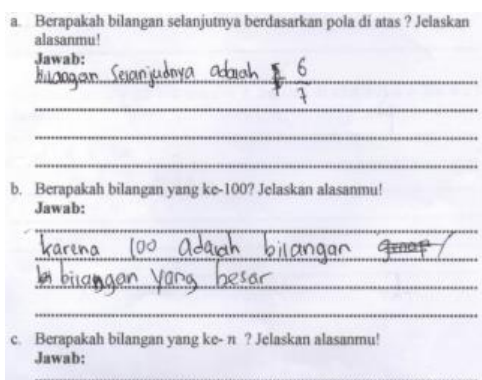 a. Berapakah bilangan selanjutnya berdasarkan pola di atas ? Jelaskan
alasanmu!
Jawab:
bilangan Selanjudnya adalah 6/7
b. Berapakah bilangan yang ke-100? Jelaskan alasanmu!
Jawab:
karena 100 adalah bilangan genap /
bilangan yang besar
c. Berapakah bilangan yang ke- n ? Jelaskan alasanmu!
Jawab: